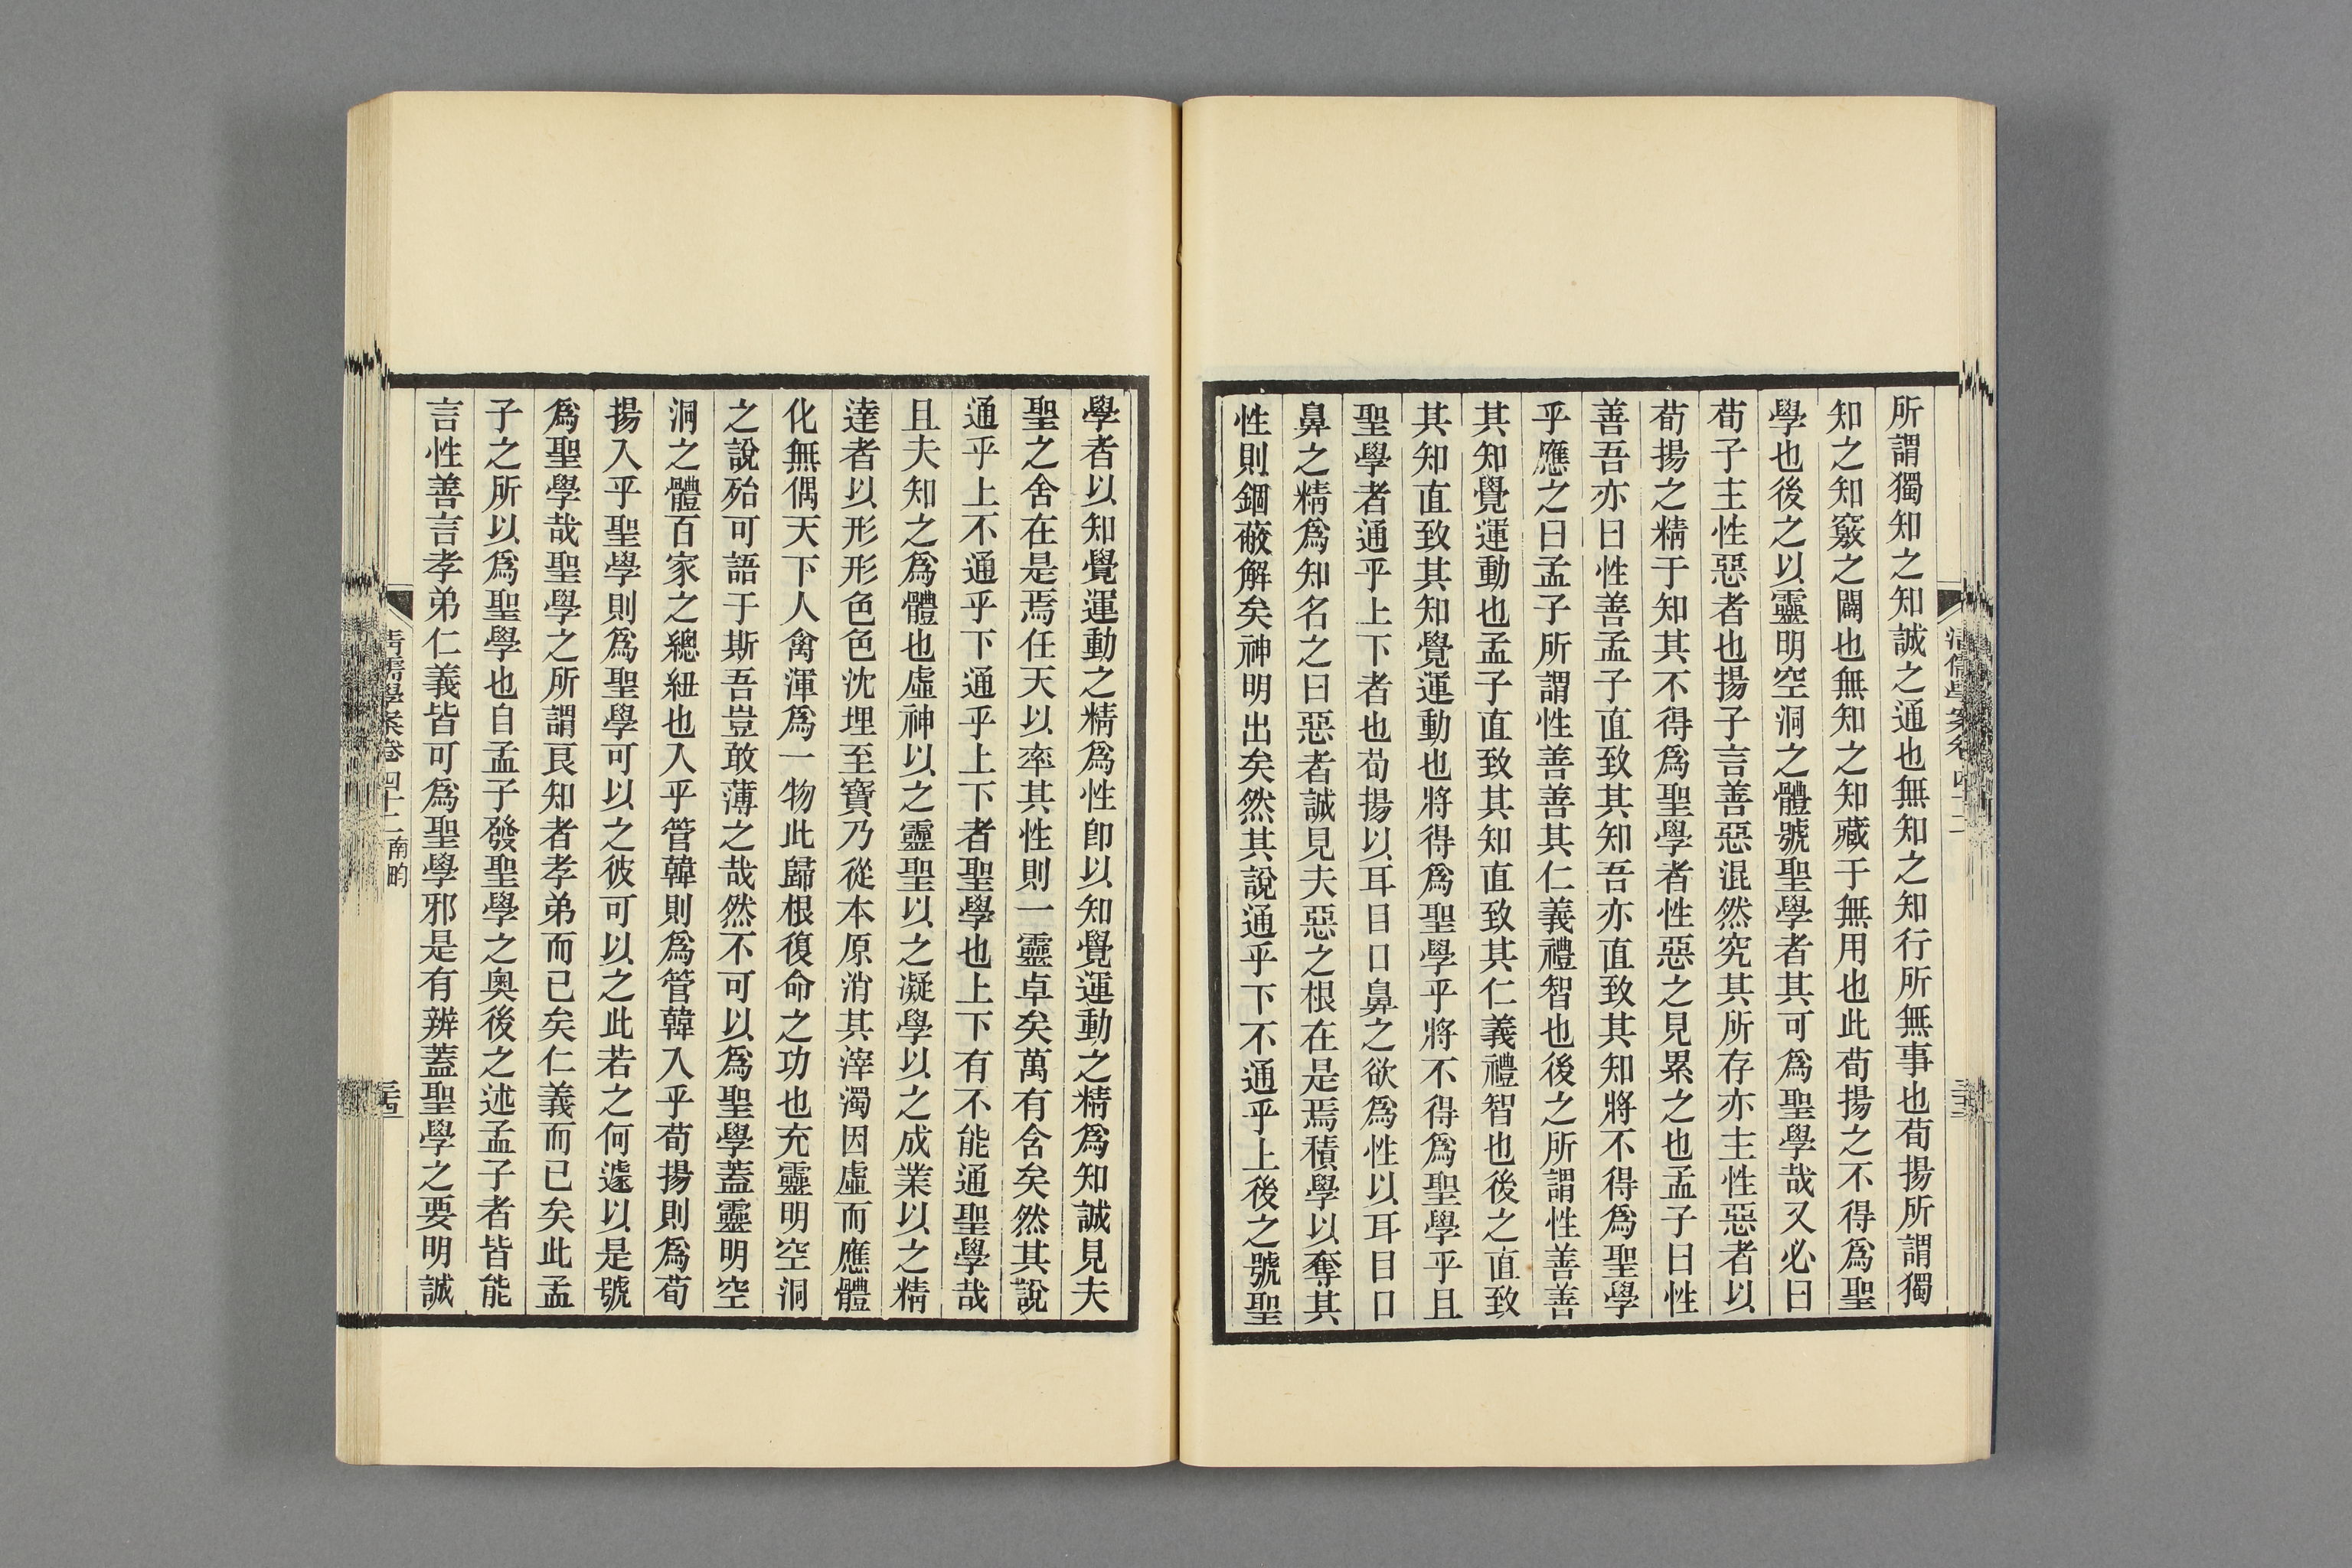 所謂獨知之知誠之通也無知之知行所無事也荀揚所謂獨
知之知竅之闢也無知之知藏于無用也此荀揚之不得爲聖
學也後之以靈明空洞之體號聖學者其可爲聖學哉又必曰
荀子主性惡者也揚子言善惡混然究其所存亦主性惡者以
荀揚之精于知其不得爲聖學者性惡之見累之也孟子曰性
善吾亦曰性善孟子直致其知吾亦直致其知將不得爲聖學
乎應之曰孟子所謂性善善其仁義禮智也後之所謂性善善
其知覺運動也孟子直致其知直致其仁義禮智也後之直致
其知直致其知覺運動也將得爲聖學乎將不得爲聖學乎且
聖學者通乎上下者也荀揚以耳目口鼻之欲爲性以耳目口
鼻之精爲知名之曰惡者誠見夫惡之根在是焉積學以奪其
性則錮蔽解矣神明出矣然其說通乎下不通乎上後之號聖
清儒學案卷四十二
學者以知覺運動之精爲性卽以知覺運動之精爲知誠見夫
聖之舍在是焉任天以率其性則一靈卓矣萬有含矣然其說
通乎上不通乎下通乎上下者聖學也上下有不能通聖學哉
且夫知之爲體也虛神以之靈聖以之凝學以之成業以之精
達者以形形色色沈埋至寶乃從本原消其滓濁因虛而應體
化無偶天下人禽渾爲一物此歸根復命之功也充靈明空洞
之說殆可語于斯吾豈敢薄之哉然不可以爲聖學蓋靈明空
洞之體百家之總紐也入乎管韓則爲管韓入乎荀揚則爲荀
揚入乎聖學則爲聖學可以之彼可以之此若之何遽以是號
爲聖學哉聖學之所謂良知者孝弟而已矣仁義而已矣此孟
子之所以爲聖學也自孟子發聖學之奧後之述孟子者皆能
言性善言孝弟仁義皆可爲聖學邪是有辨蓋聖學之要明誠
清儒學案卷四十二 南畇